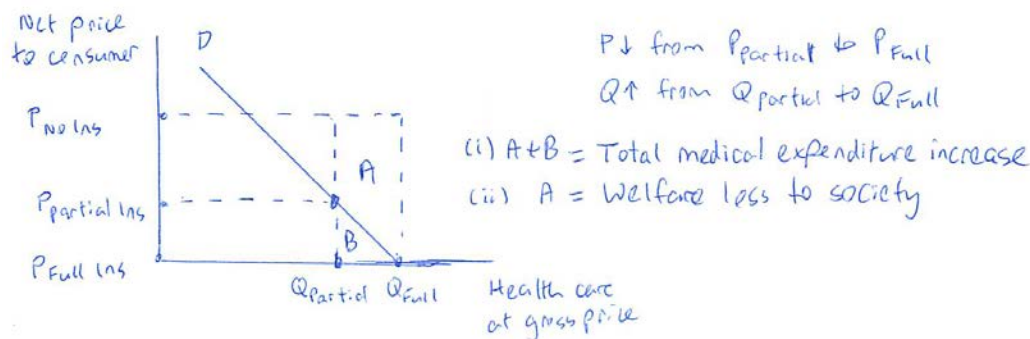 Net price
to consumer
D
P No Ins
P Partial Ins
P Full Ins
A
B
Q Partial
Q Full
Health care
at gross price
P↓ from P Partial to P Full
Q↑ from Q Partial to Q Full
(i) A+B = Total medical expenditure increase
(ii) A = Welfare loss to society